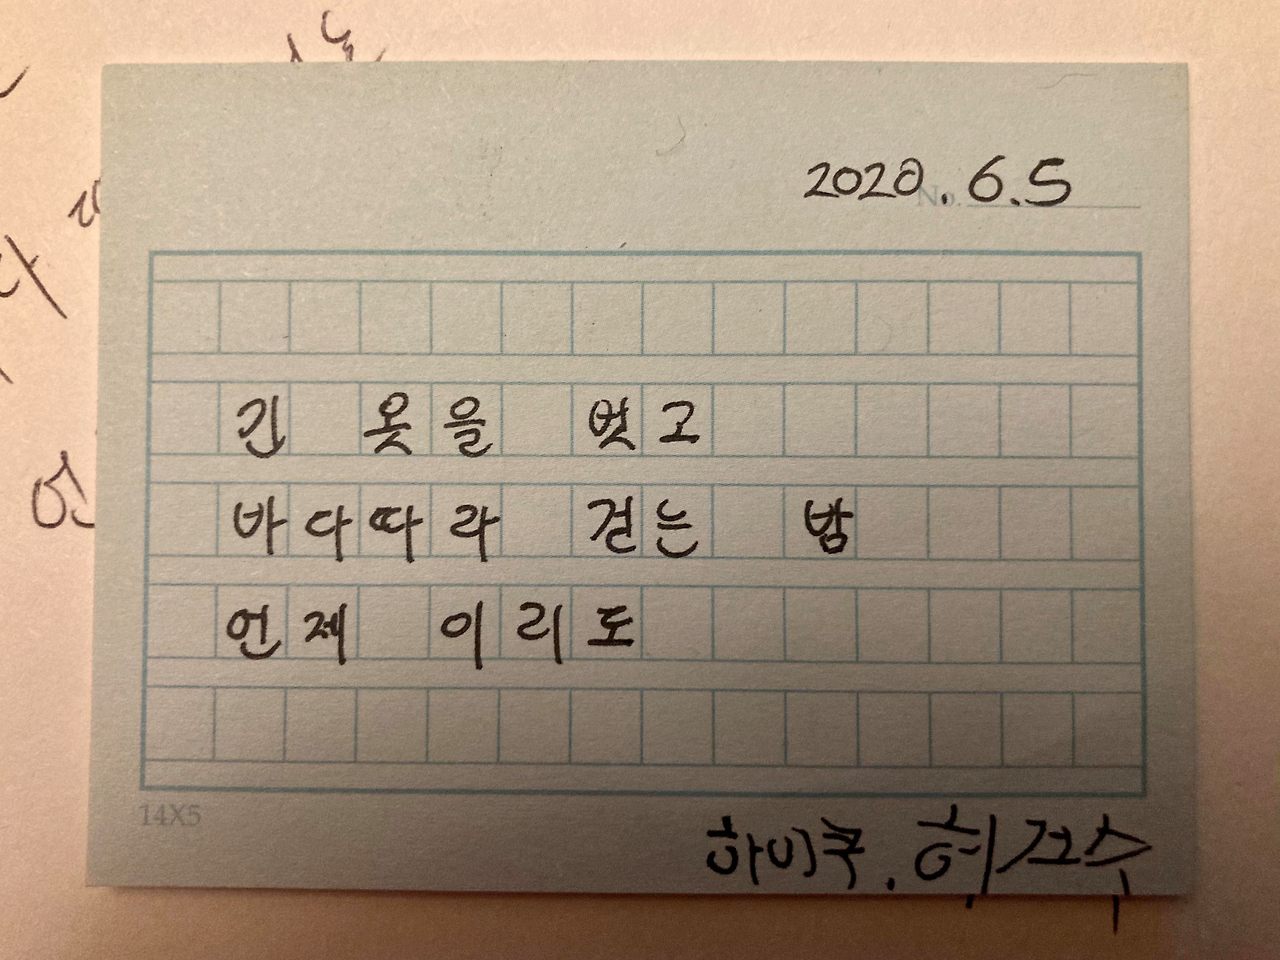 2020.6.5
No.
긴 옷을 벗고
바다따라 걷는 밤
언제 이리도
14X5
하이쿠.